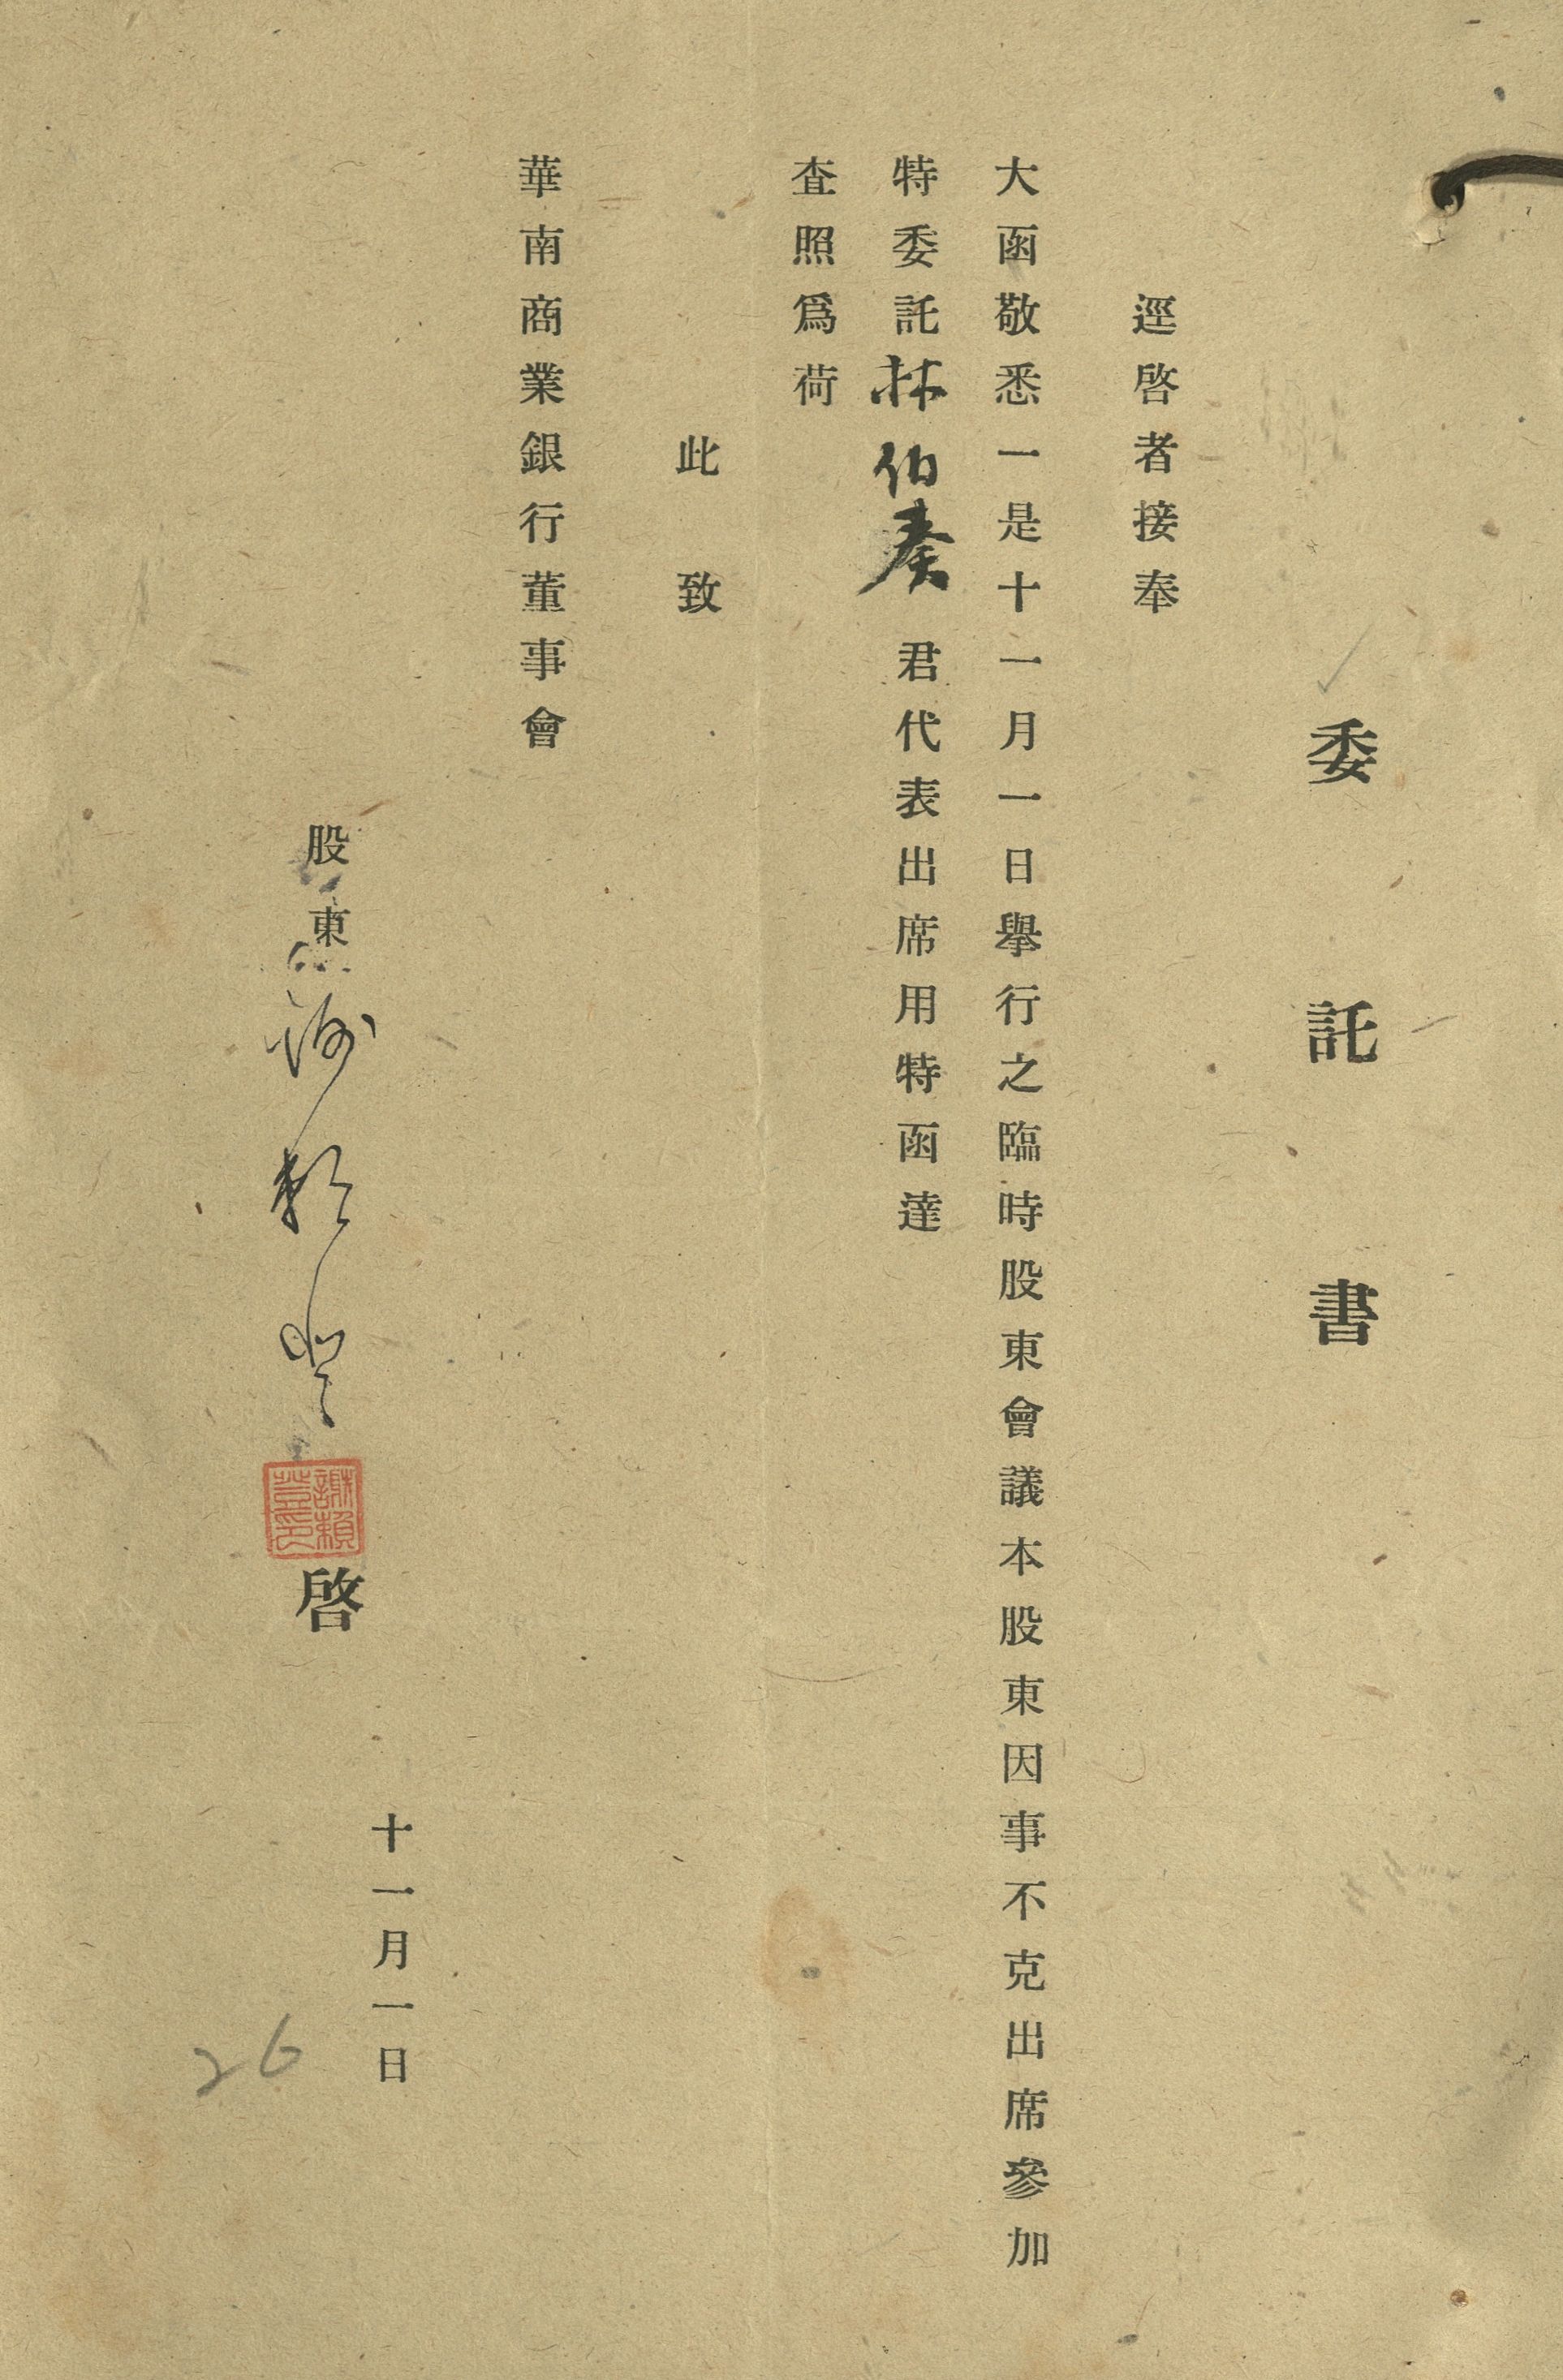 委託書
逕啓者接奉
大函敬悉一是十一月一日舉行之臨時股東會議本股東因事不克出席參加
特委託林伯奏君代表出席用特函達
査照爲荷
此致
華南商業銀行董事會
股東謝賴登啓
謝賴登印
十一月一日
26